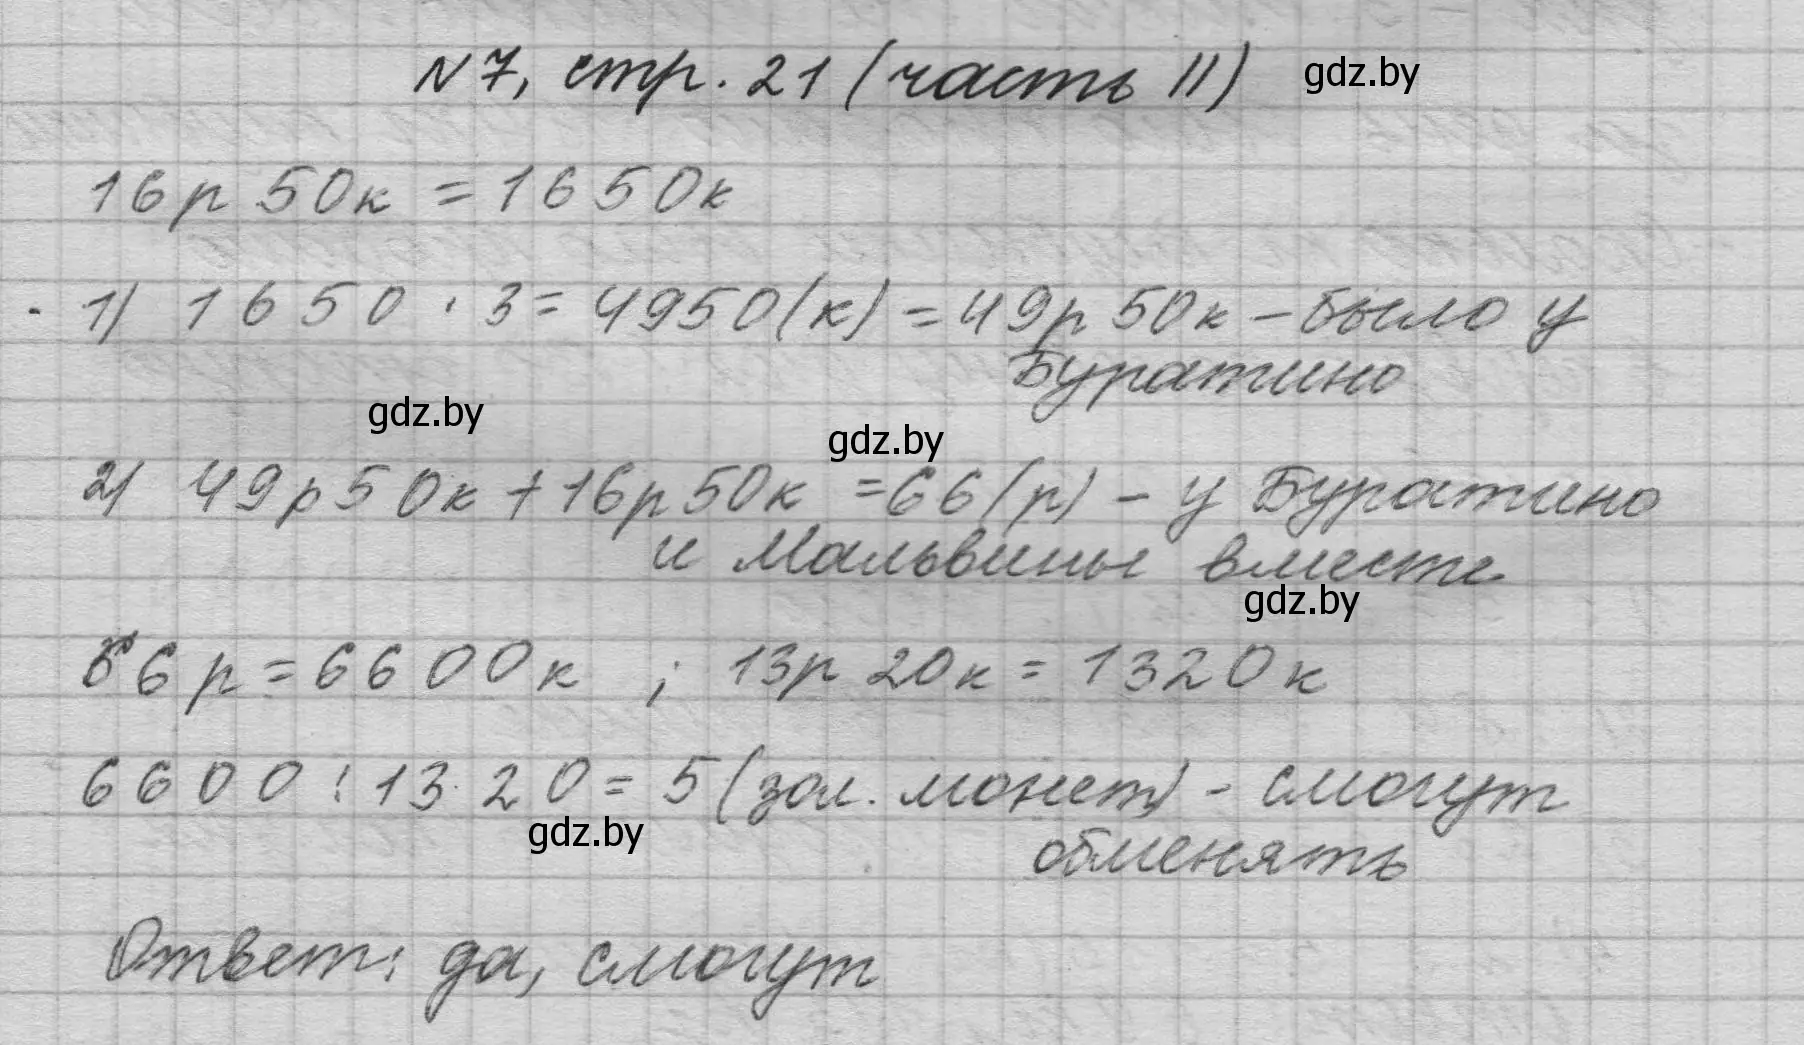 N7, стр. 21 (часть II) gdz.by
16р 50к = 1650к
1) 1650 · 3 = 4950(к) = 49р 50к – было у
Буратино
gdz.by
gdz.by
2) 49р50к + 16р50к = 66(р) – у Буратино
и Мальвины вместе
gdz.by
66р = 6600к ; 13р 20к = 1320к
6600 : 1320 = 5 (зол. монет) – смогут
gdz.by
обменять
Ответ: да, смогут